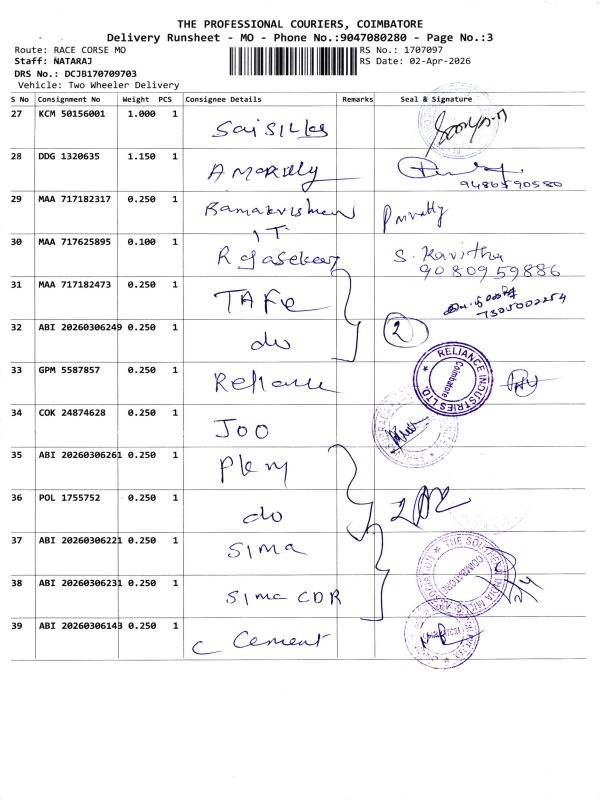 THE PROFESSIONAL COURIERS, COIMBATORE
Delivery Runsheet - MO - Phone No.:9047080280 - Page No.:3
Route: RACE CORSE MO RS No.: 1707097
Staff: NATARAJ RS Date: 02-Apr-2026
DRS No.: DCJB170709703
Vehicle: Two Wheeler Delivery
S No Consignment No Weight PCS Consignee Details Remarks Seal & Signature
27 KCM 50156001 1.000 1 Sai Silks
28 DDG 1320635 1.150 1
9486590580
29 MAA 717182317 0.250 1 Ramakrishnan
IT
30 MAA 717625895 0.100 1 Rajasekar S. Kavitha
9080959886
31 MAA 717182473 0.250 1 TAFE
7305002254
32 ABI 20260306249 0.250 1 do 2
33 GPM 5587857 0.250 1 Reliance RELIANCE INDUSTRIES LTD. Coimbatore
34 COK 24874628 0.250 1 Joo
35 ABI 20260306261 0.250 1
36 POL 1755752 0.250 1 do
37 ABI 20260306221 0.250 1 SIMA THE SOUTHERN INDIA MILLS COIMBATORE
38 ABI 20260306231 0.250 1 SIMA CDR
39 ABI 20260306143 0.250 1 Cement